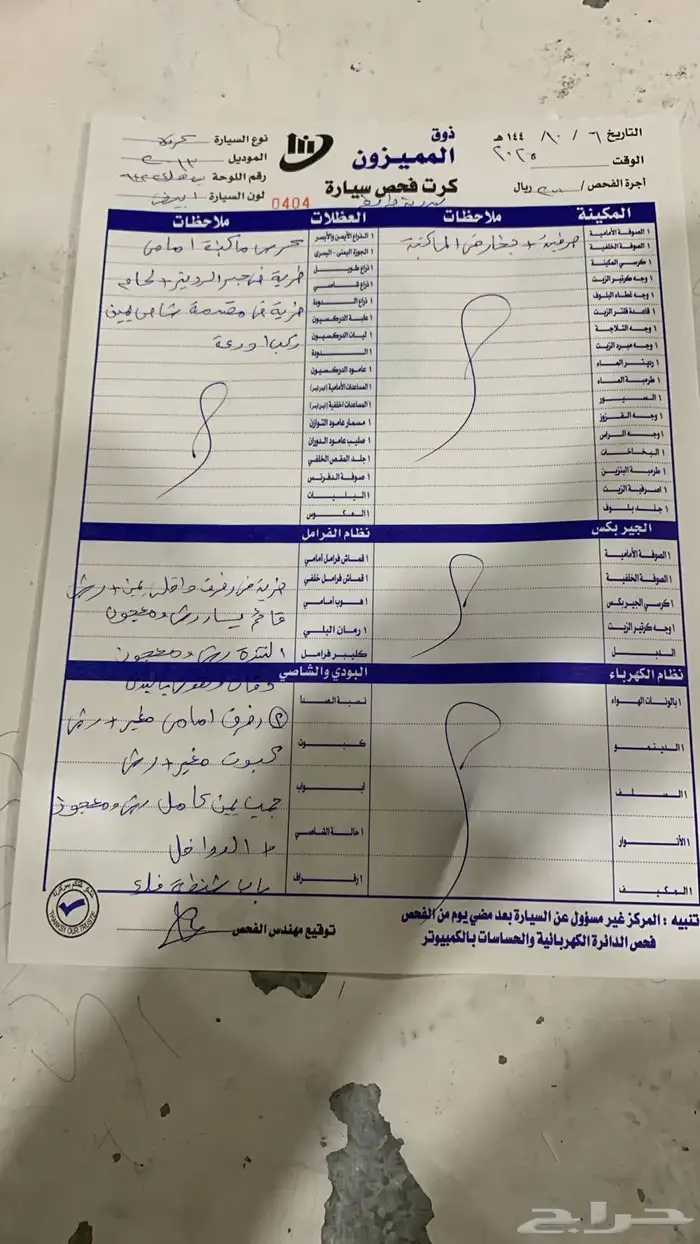 ذوق
المميزون
كرت فحص سيارة
0404
التاريخ ٦ / ١٠ / ١٤٤ هـ
الوقت ٢٠٢٥
أجرة الفحص / ريال
نوع السيارة
الموديل ٢٠١٣
رقم اللوحة
لون السيارة ابيض
المكينة
ملاحظات
العضلات
ملاحظات
١ الصوفة الأمامية
١ الصوفة الخلفية
١ كرسي المكينة
١ وجه كرتير الزيت
١ وجه غطاء البلوف
١ قاعدة فلتر الزيت
١ وجه الثلاجة
١ وجه مبرد الزيت
١ رديتر الماء
١ طرمبة الماء
١ السيور
١ وجه القزوز
١ وجه الراس
١ البخاخات
١ طرمبة البنزين
١ اصرفية الزيت
١ جلد بلوف
صرفية + بخار من الماكينة
١ الذراع الأيمن والأيسر
١ الجوزة اليمنى - اليسرى
١ ذراع طويل
١ ذراع قاصي
١ ذراع الدودة
١ علبة الدركسيون
١ ليات الدركسيون
١ الدودة
١ عامود الدركسيون
١ المساعدات الأمامية
١ المساعدات الخلفية
١ مسمار عامود التوازن
١ صليب عامود الدوران
١ جلد المقص الخلفي
١ صوفة الدفرنس
١ البليات
١ العكوس
كرسي ماكينة امامي
ضربة في جسر الرديتر + لحام
ضربة في مقدمة شاصي يمين
الجير بكس
نظام الفرامل
١ الصوفة الأمامية
١ الصوفة الخلفية
١ كرسي الجير بكس
١ وجه كرتير الزيت
الدبل
١ قماش فرامل أمامي
١ قماش فرامل خلفي
١ هوب أمامي
١ رمان البلي
١ كليبر فرامل
ضربة في رفرف داخلي يمين + رش
قائم يسار رش ومعجون
رش ومعجون
نظام الكهرباء
البودي والشاصي
١ بالونات الهواء
١ الدينمو
١ السلف
١ الأنوار
١ المكيف
نسبة الصدا
كبوت
أبواب
١ حالة الشاصي
١ رفراف
٢ رفرف امامي مغير + رش
كبوت مغير + رش
جنب يمين كامل رش ومعجون
+ الدواخل
باب شنطة
تنبيه : المركز غير مسؤول عن السيارة بعد مضي يوم من الفحص
فحص الدائرة الكهربائية والحساسات بالكمبيوتر
توقيع مهندس الفحص
حراج